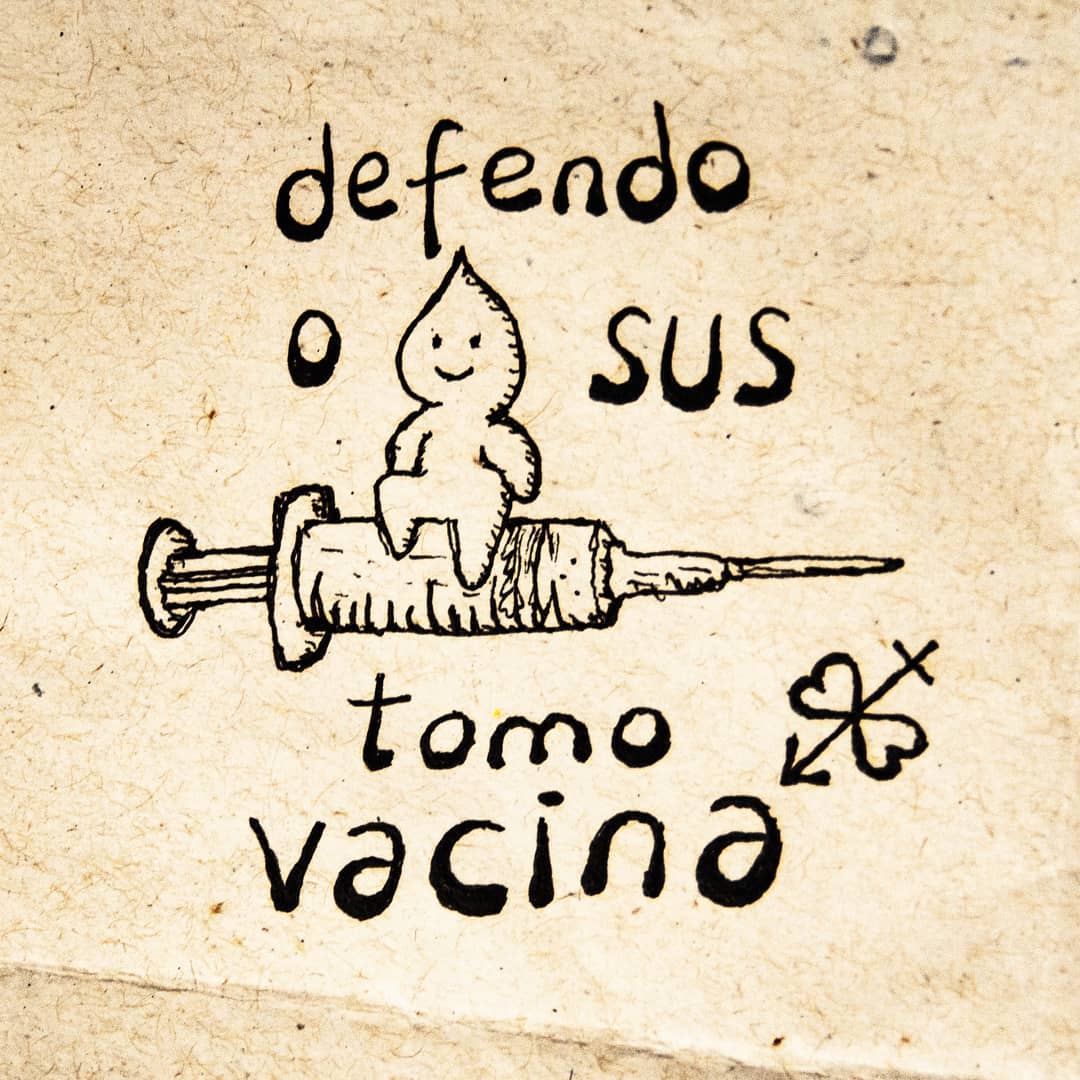 defendo
o SUS
tomo
vacina